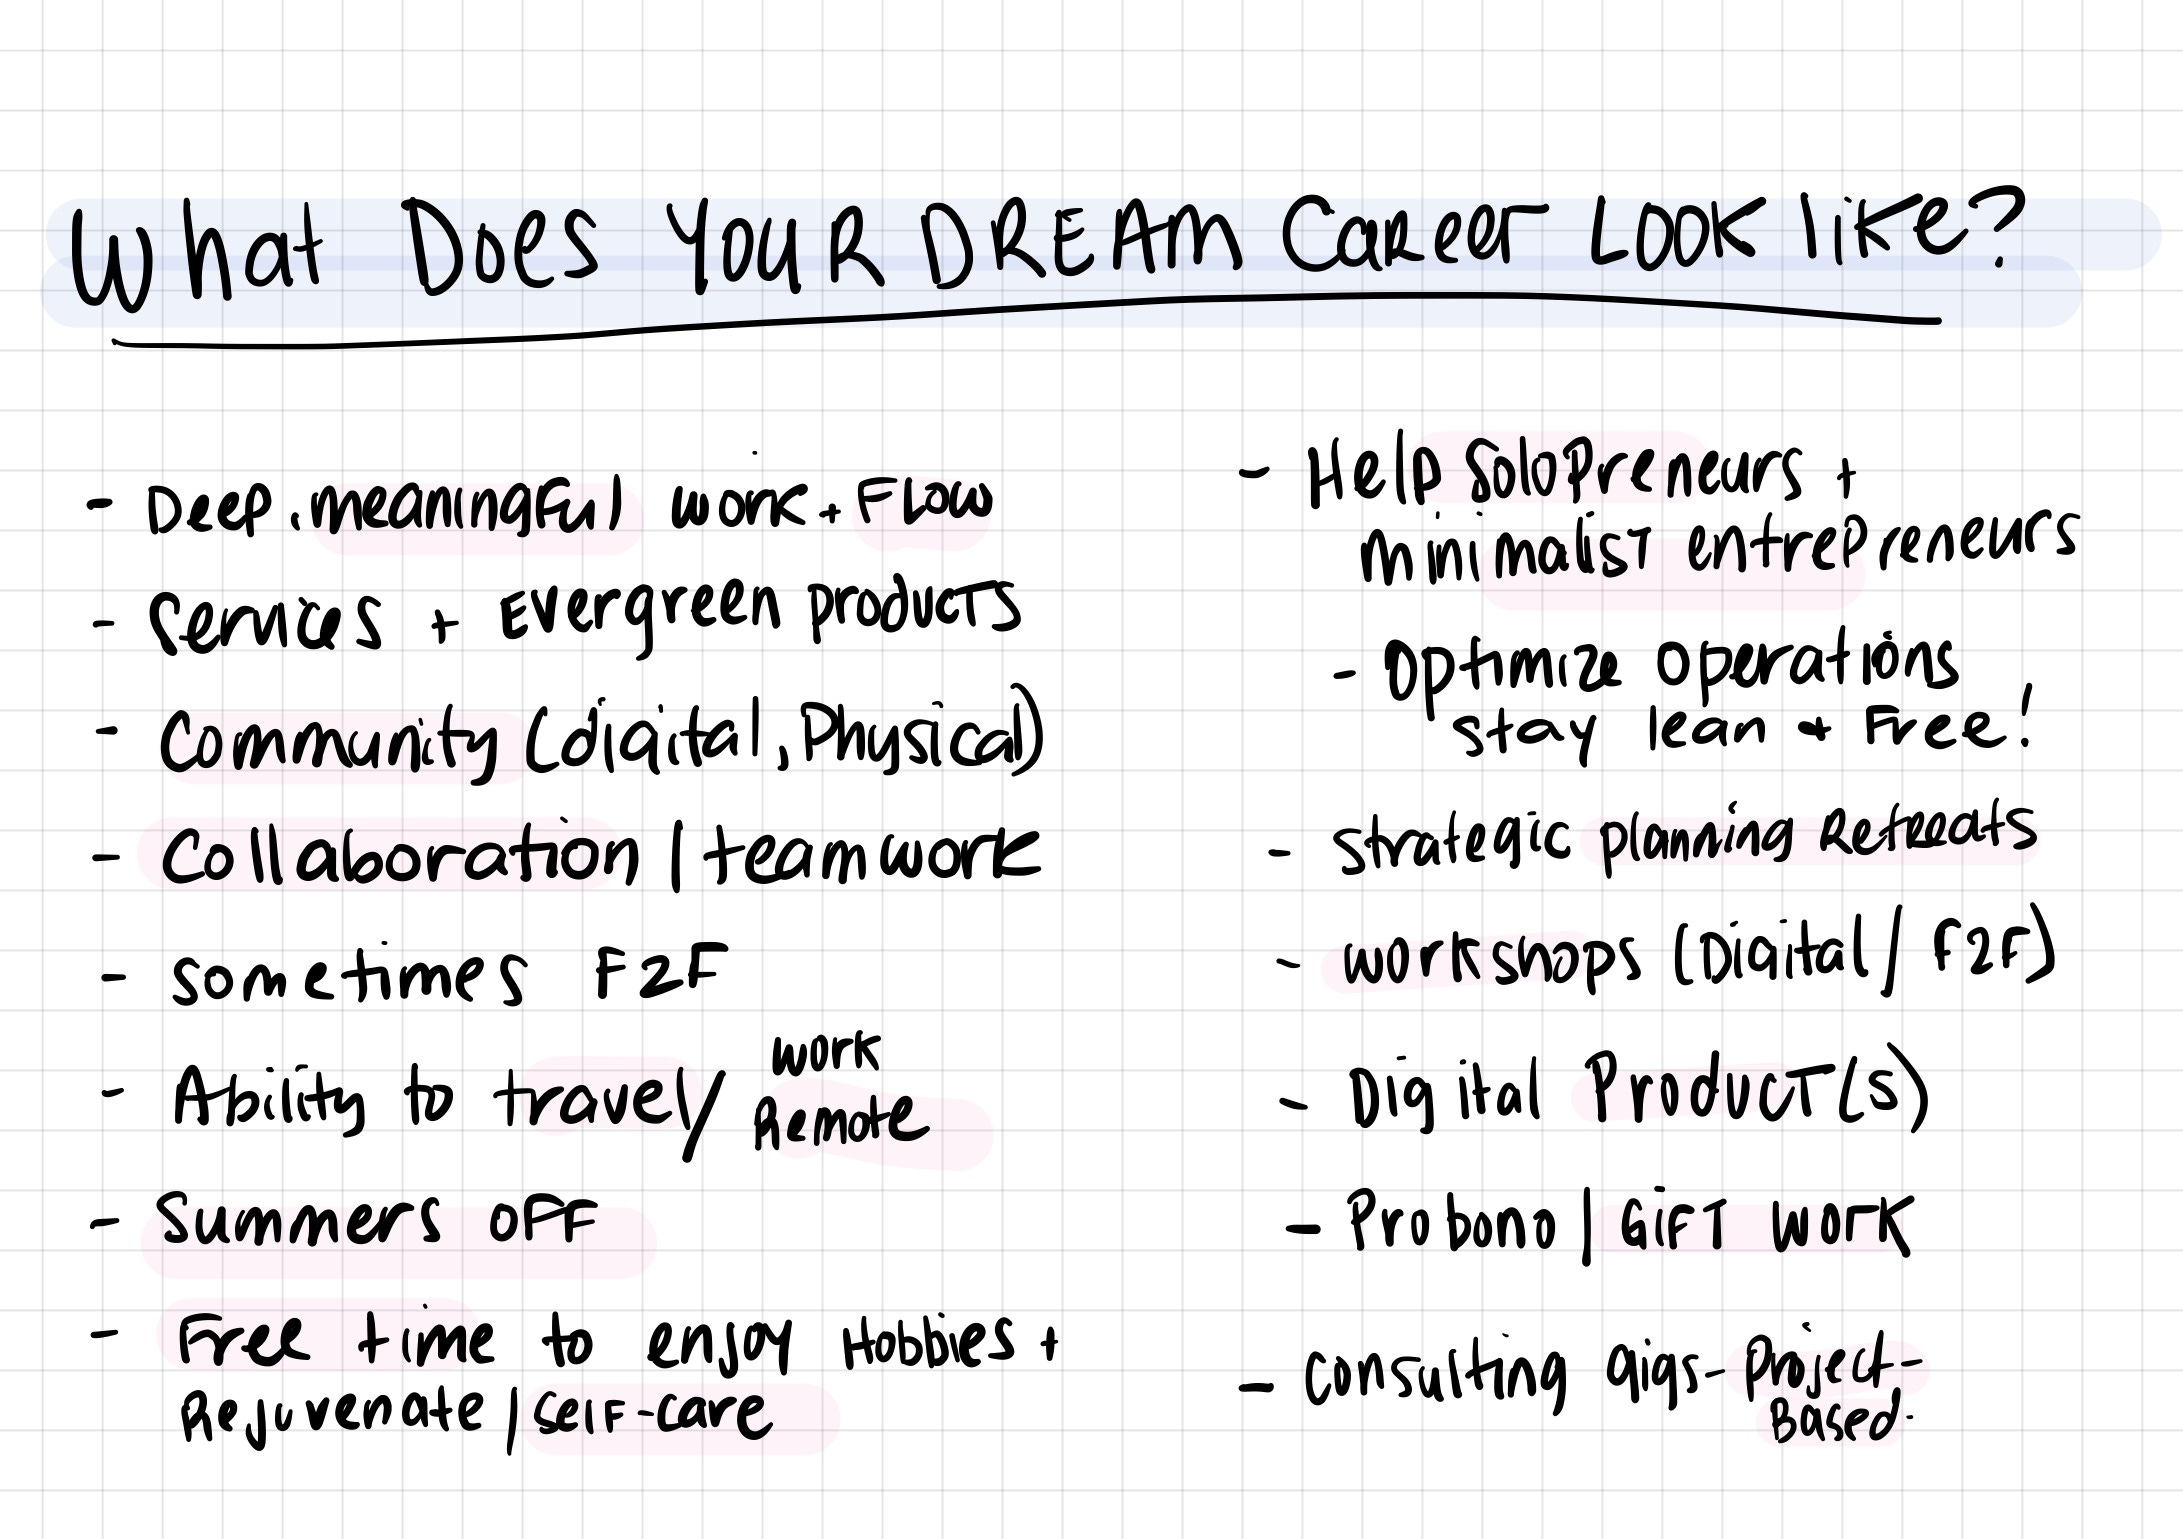 What Does YOUR DREAM Career Look like?
- Deep, meaningful work + Flow
- Services + Evergreen products
- Community (digital, Physical)
- Collaboration | teamwork
- sometimes F2F
- Ability to travel / work
Remote
- Summers OFF
- Free time to enjoy Hobbies +
Rejuvenate | self-care
- Help SoloPreneurs +
minimalist entrepreneurs
- Optimize operations
stay lean + Free!
- strategic planning Retreats
- workshops (Digital / F2F)
- Digital Product(s)
- Probono | GIFT WORK
- Consulting gigs - project-
Based.